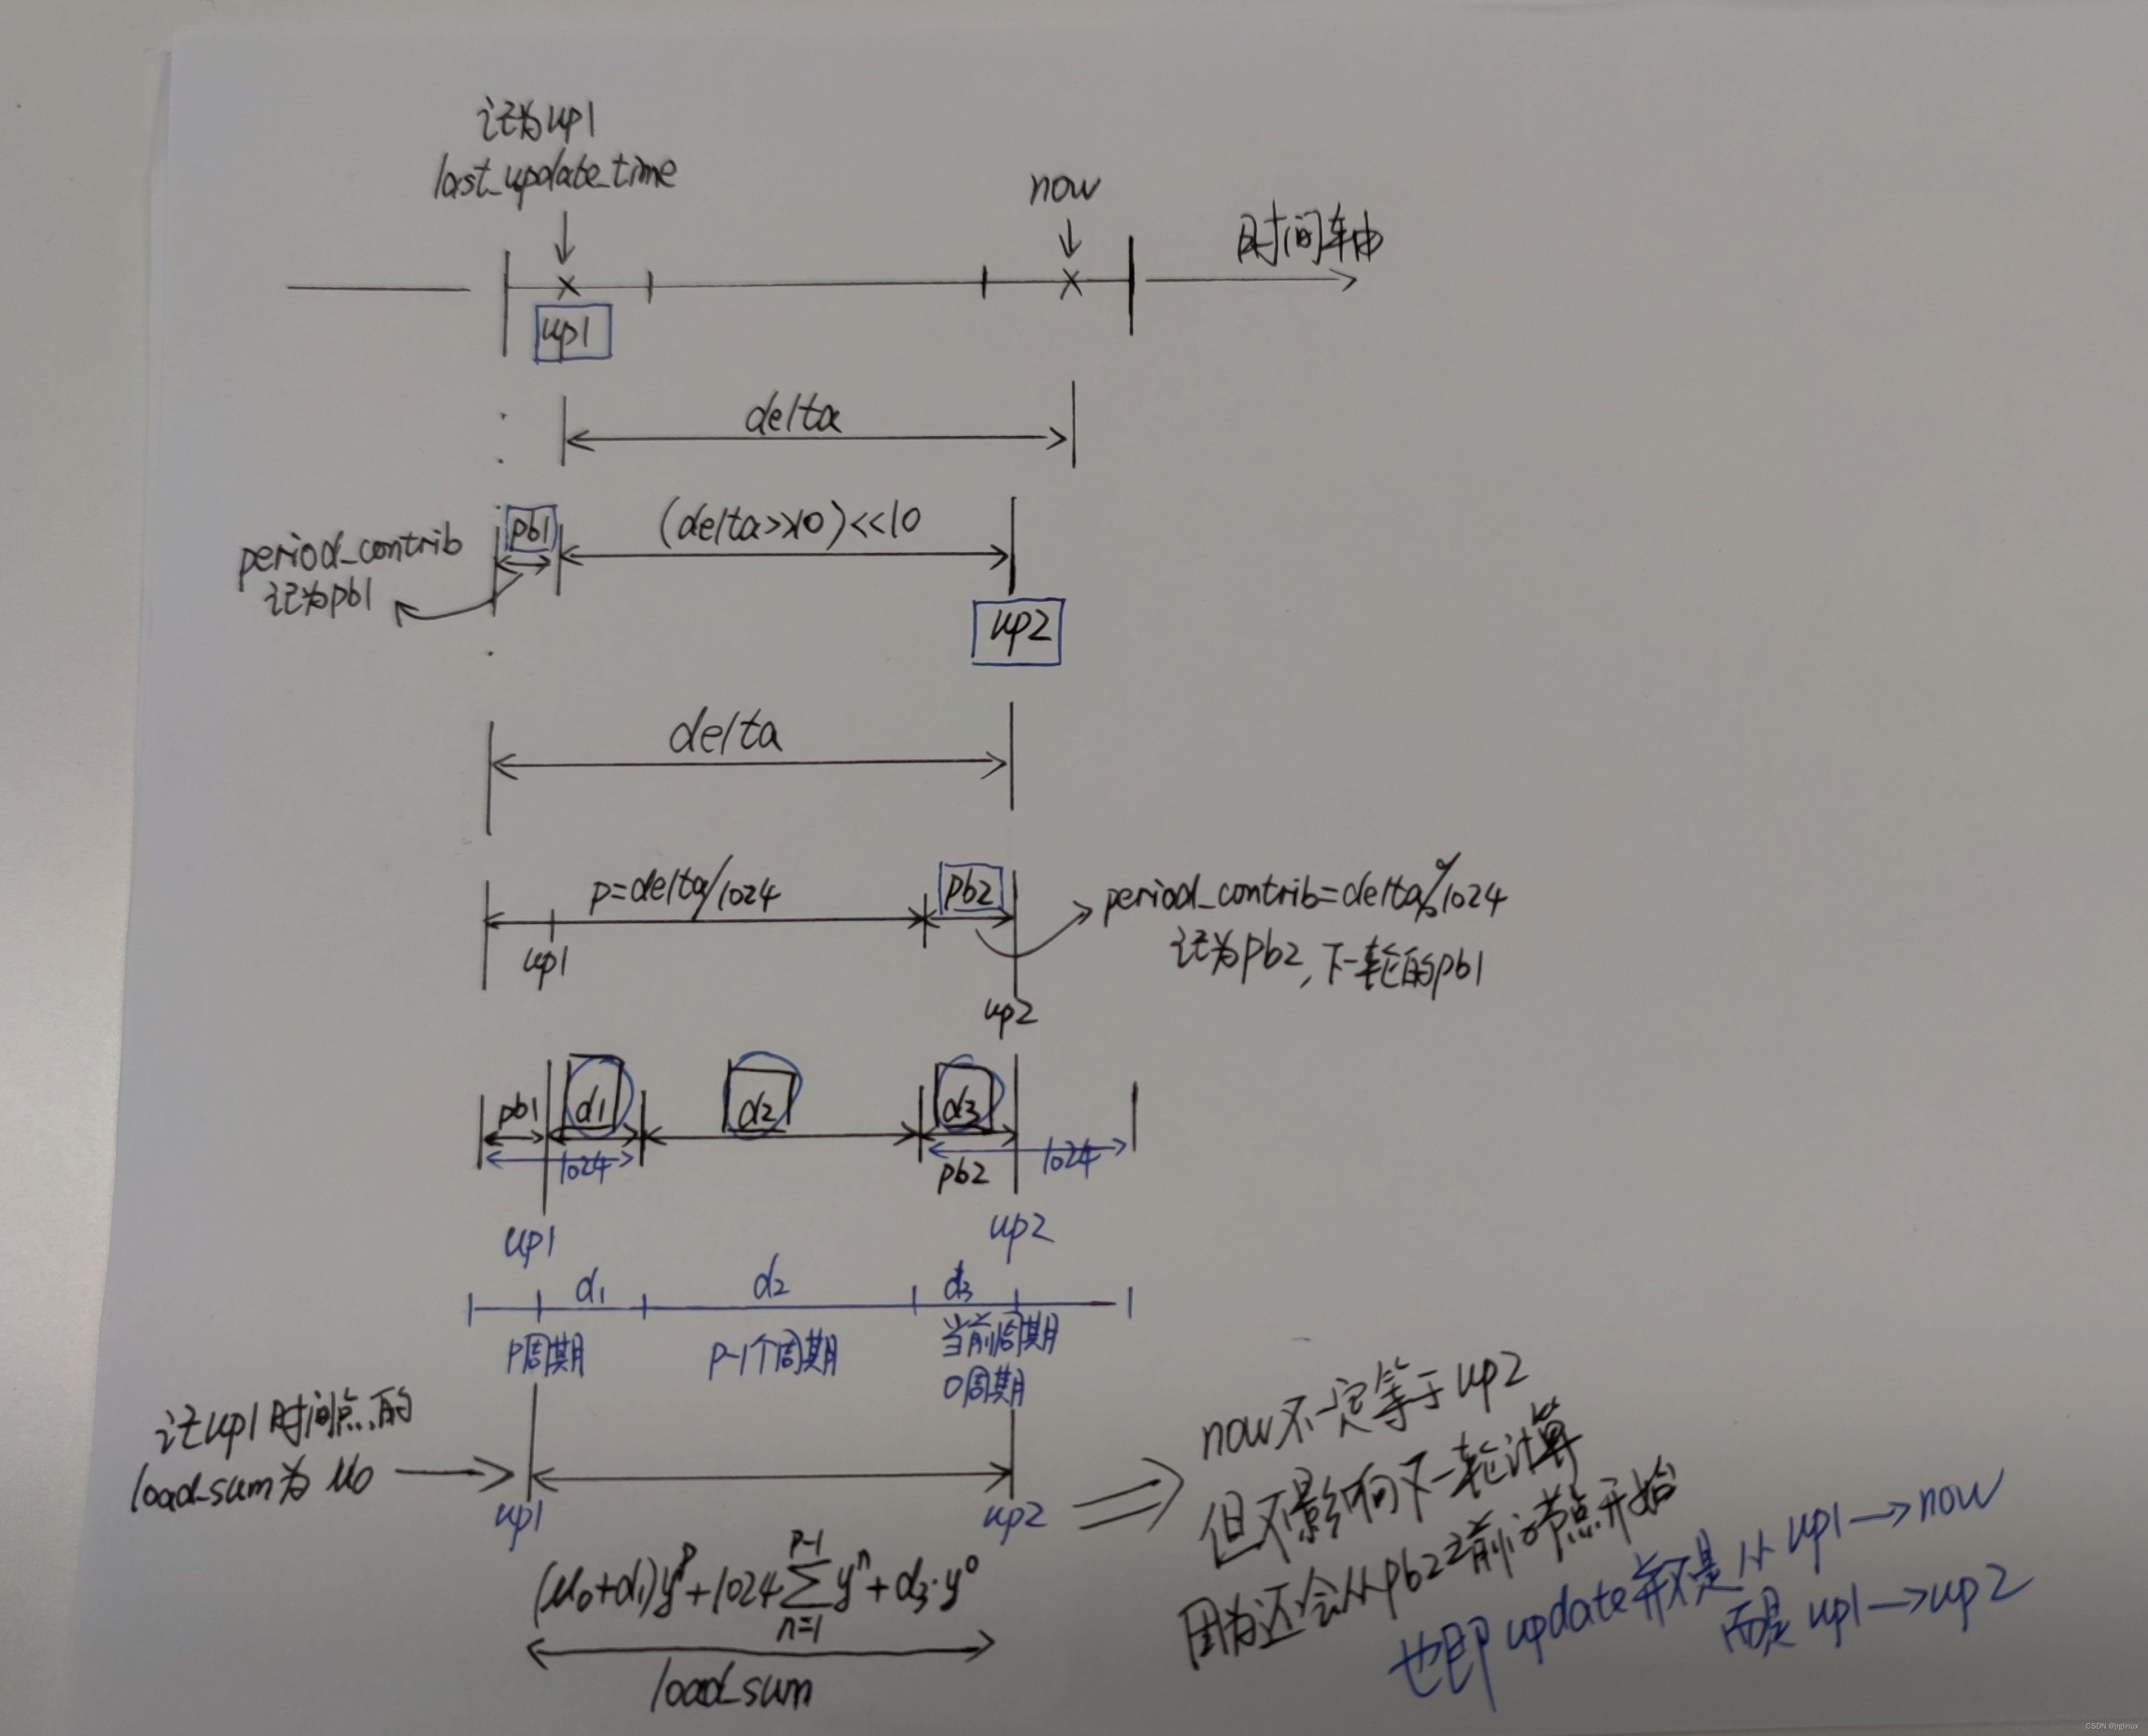 记为up1
last_update_time
now
时间轴
up1
delta
pb1
(delta>>10)<<10
period_contrib
记为pb1
up2
delta
p=delta/1024
pb2
period_contrib=delta%1024
up1
记为pb2,下一轮的pb1
up2
pb1
d1
d2
d3
1024
pb2
1024
up1
up2
d1
d2
d3
p周期
p-1个周期
当前周期
0周期
记up1时间点的
load_sum为μ0
up1
up2
(μ0+d1)y^p+1024∑_{n=1}^{p-1}y^n+d3·y^0
load_sum
now不一定等于up2
但不影响下一轮计算
因为还会从pb2之前的节点开始
也即update并不是从up1→now
而是up1→up2
CSDN @jrglinux